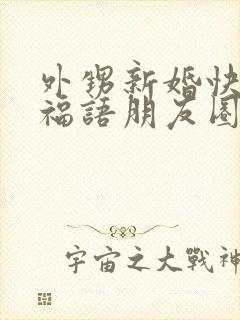 外甥新婚快
福語朋友圈
宇宙之大戰神